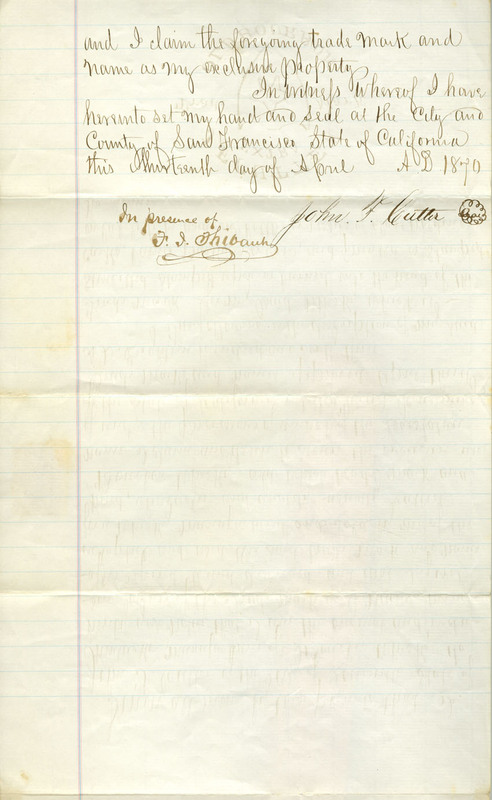 and I claim the foregoing trade mark and
name as my exclusive property
In witness whereof I have
hereunto set my hand and seal at the City and
County of San Francisco State of California
this Thirteenth day of April A D 1870
In presence of John. F. Cutter Seal
F. J. Thibault